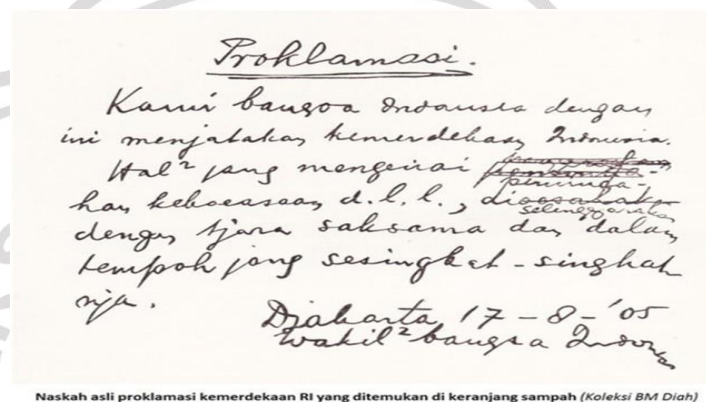 Proklamasi.
Kami bangsa Indonesia dengan
ini menjatakan kemerdekaan Indonesia.
Hal² jang mengenai
peminda-
han kekoeasaan d.l.l.,
diselenggarakan
dengan tjara saksama dan dalam
tempoh jang sesingkat-singkat
nja.
Djakarta 17 - 8 - '05
Wakil² bangsa Indonesia
Naskah asli proklamasi kemerdekaan RI yang ditemukan di keranjang sampah (Koleksi BM Diah)